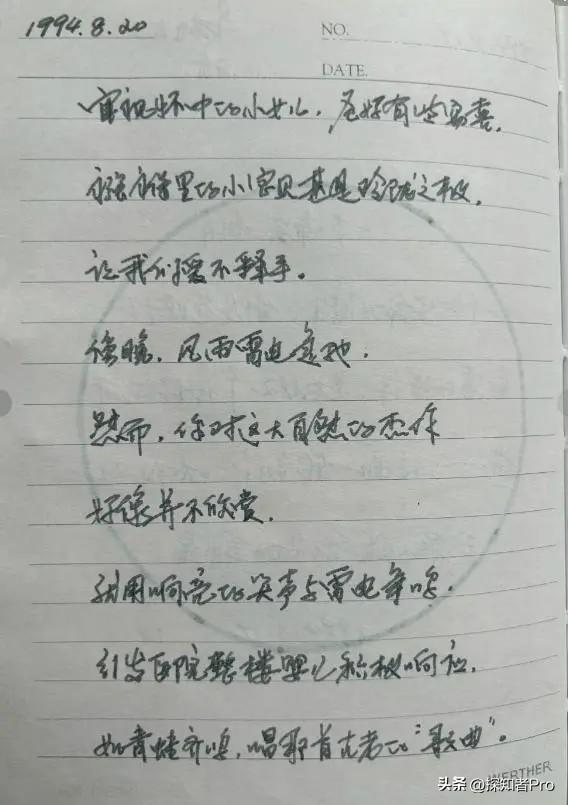 1994.8.20
NO.
DATE.
审视怀中的小女儿,居然有些惊喜,
襁褓里的小宝贝甚是玲珑之极,
让我们爱不释手。
傍晚,风雨雷电交加.
然而,你对这大自然的杰作
好像并不欣赏,
就用响亮的哭声与雷电争鸣.
引发医院整楼婴儿积极响应,
如青蛙齐鸣,唱那首古老的“歌曲”。
WERTHER
头条 @探知者Pro